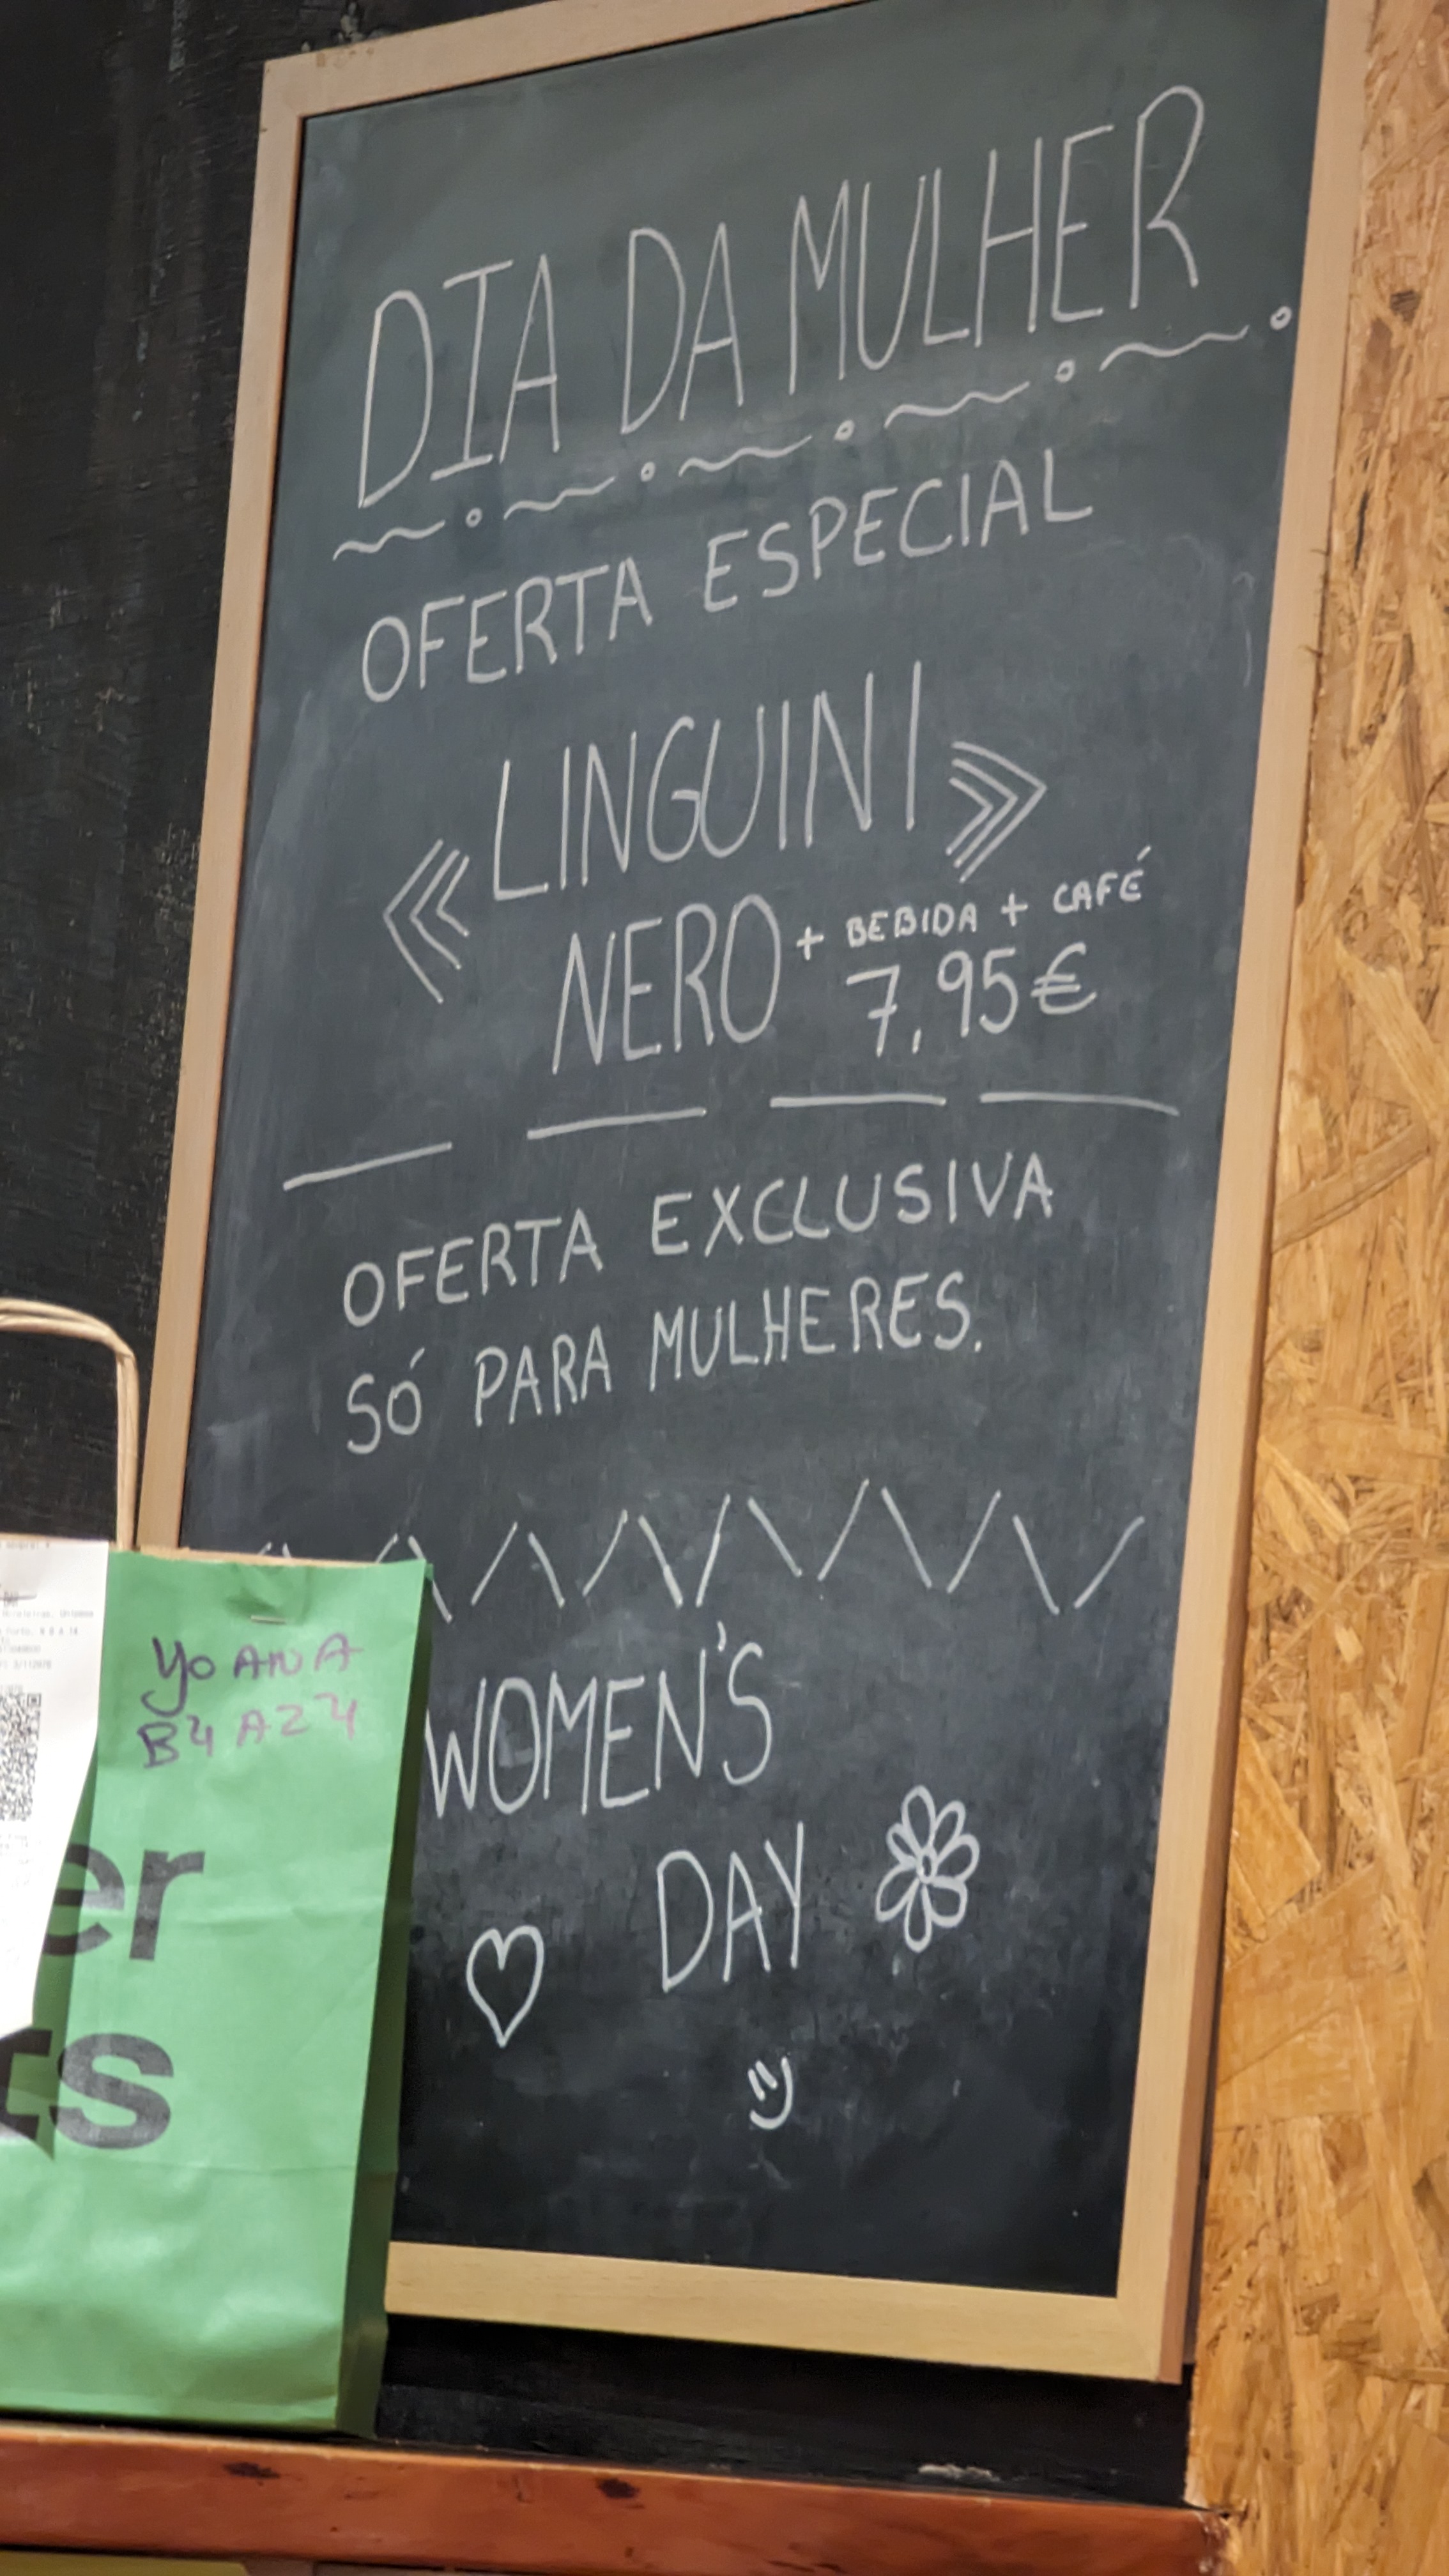 DIA DA MULHER
OFERTA ESPECIAL
LINGUINI
NERO + BEBIDA + CAFÉ
7,95€
OFERTA EXCLUSIVA
SÓ PARA MULHERES.
WOMEN'S
DAY
YOANA
B4A24
er
ts